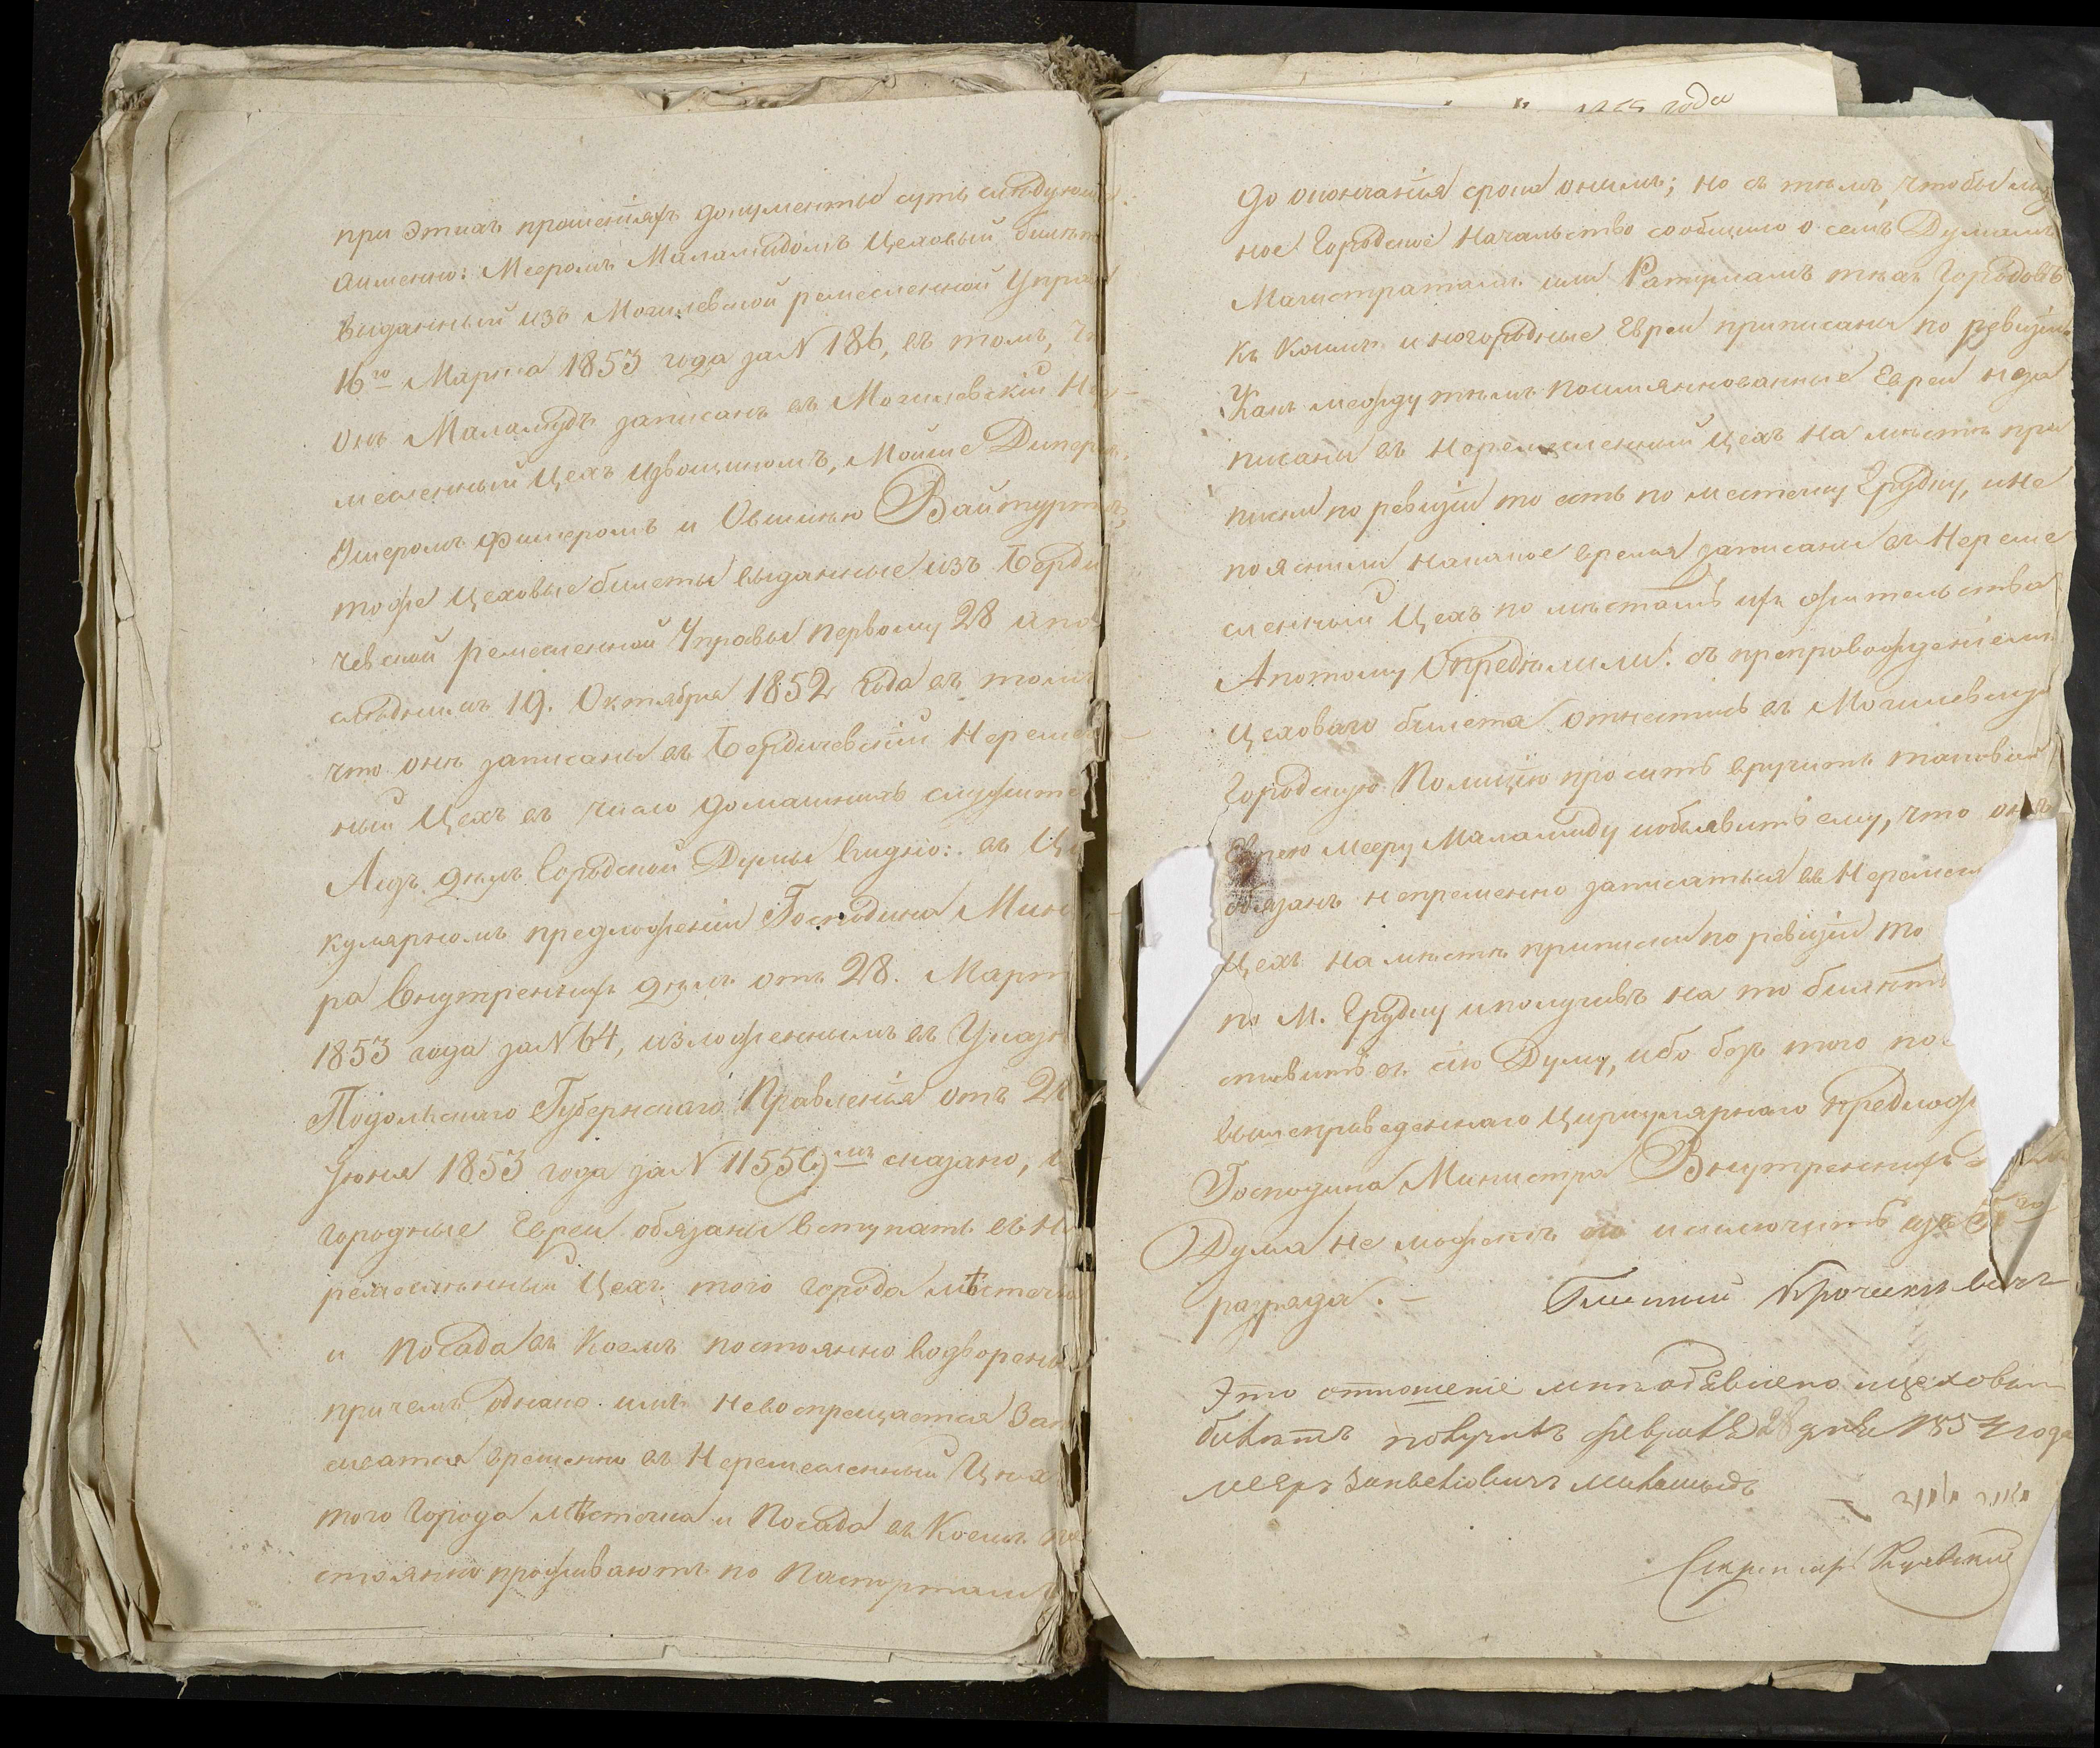 при этихъ прошенiяхъ документы суть следующи
аименно: Меромъ Маламудомъ Цеховый билетъ
выданный изъ Могилевской ремесленной Упра
16го Марта 1853 года за N 186, въ томъ, ч
онъ Маламудъ записанъ въ Могилевскiй Не
месленный Цехъ Извощикомъ, Мойше
Ушеромъ Фишеромъ и Овшиею
тоже Цеховые билеты выданные изъ Берди
чевской ремесленной Управы первому 28 апо
следнимъ 19. Октября 1852 года въ томъ
что они записаны въ Бердичевскiй Нереме
ный Цехъ въ число домашнихъ служите
Аизъ делъ Городской Думы видно: въ Ци
кулярномъ предложенiи Господина Мин
ра Внутреннихъ делъ отъ 28. Март
1853 года за N 64, изложеннымъ въ Указе
Подольскаго Губернскаго Правленiя отъ 2
Iюня 1853 года за N 11556мъ сказано,
городные Евреи обязаны вступать въ Не
ремесленный Цехъ того города мѣстечка
и посада въ Коемъ постоянно водворены
причемъ однако имъ невоспрещается Зап
сыватся временно въ Неремесленный Цехъ
того Города мѣстечка и Посада въ Коемъ по
стоянно проживаютъ по Паспортамъ
1855 года
до окончанiя срока онымъ; но съ темъ чтобы
ное Городское Начальство сообщило о семъ Думамъ
Магистратамъ или Ратушамъ техъ Городовъ
къ Коимъ иногородные Евреи приписаны по ревизiи
Какъ между темъ поимянованные Евреи неза
писаны въ Неремесленный Цехъ на месте при
писки по ревизiи то есть по местечку Грудку, ине
пояснили накакое время записаны въ Нереме
сленный Цехъ по местамъ ихъ жительства
Апотому Определили: съ препровожденiемъ
Цеховаго билета отнестись въ Могилевскую
Городскую Полицiю просить вручить таковой
Еврею Мееру Маламуду иобъявить ему, что онъ
обязанъ непременно записаться въ Неремесл
Цехъ на месте приписки по ревизiи то
по М. Грудку иполучивъ на то билетъ
ставить въ сiю Думу, ибо безъ того по
вышеприведеннаго Циркулярнаго предлож
Господина Министра Внутреннихъ
Дума не можетъ его исключить изъ
разряда. — Гласный
Это отношенiе мне обявлено ицеховый
билетъ получилъ февраля 28 дня 1854 года
Меяръ Маламудъ
Секретарь